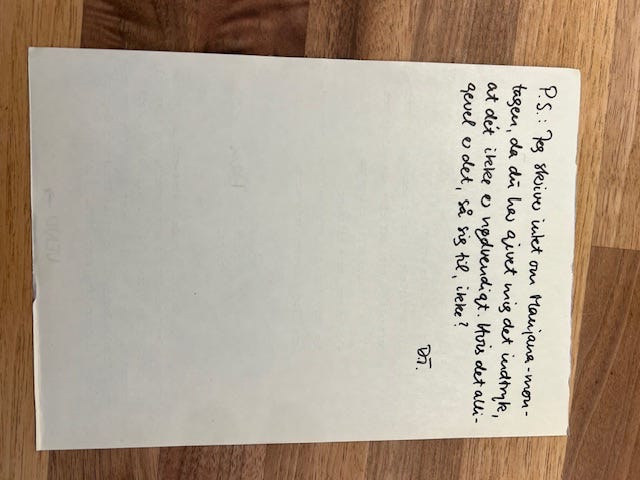 P.S.: Jeg skriver intet om Marijana-mon-
tagen, da du har givet mig det indtryk,
at dét ikke er nødvendigt. Hvis det alli-
gevel er det, så sig til, ikke?